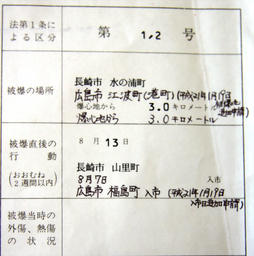 法第1条に
よる区分
第 1,2 号
被爆の場所
長崎市 水の浦町
広島市 江波町 (平成21年1月19日
爆心地から 3.0 キロメートル
爆心地から 3.0 キロメートル
被爆直後の
行動
(おおむね
2週間以内)
8月13日
長崎市 山里町
8月7日 入市
広島市 福島町 入市 (平成21年1月19日
入市日追加申請)
被爆当時の
外傷、熱傷
の状況